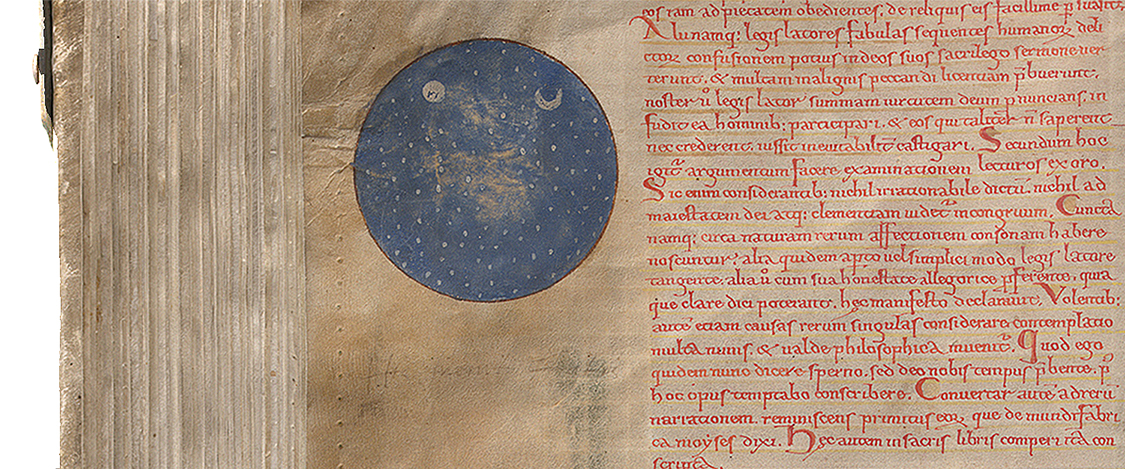 eos tam ad pietatem obedientes. de reliquis eis facillime p̄ suasit.
Alii namq; legis latores fabulas sequentes humanoꝝ deli
ctoꝝ confusionem potius in deos suos sacrilego sermone ver
terunt. & multam malignis peccandi licentiam p̄buerunt.
noster ū legis lator summam virtutem deum pnuncians. in
fudit ea hominib; participari. & eos qui talit̃ n̄ saperent
nec crederent. iussit inevitabilit̃ castigari. Secundum hoc
igit̃ argumentum facere examinationem lecturos exoro.
Sic enim considerantib; nichil irrationabile dictū. nichil ad
maiestatem dei atq; clementiam videt̃ incongruum. Cuncta
namq; circa naturam rerum affectionem consonam habere
noscuntur; alia quidem apto vel simplici modo legis latore
tangente; alia ū cum sua honestate allegorice pferente. quia
que clare dici poterant. hęc manifesto declaravit. Volentib;
autē etiam causas rerum singulas considerare. contemplatio
multa nimis. & valde philosophica invenit̃. Quod ego
quidem nunc dicere sperno. sed deo nobis tempus p̄bente. p
hoc opus temptabo conscribere. Convertar autē ad rerū
narrationem. reminiscens primitus eoꝝ que de mundi fabri
ca moyses dixi. Hęc autem in sacris libris comperi ita con
scripta.